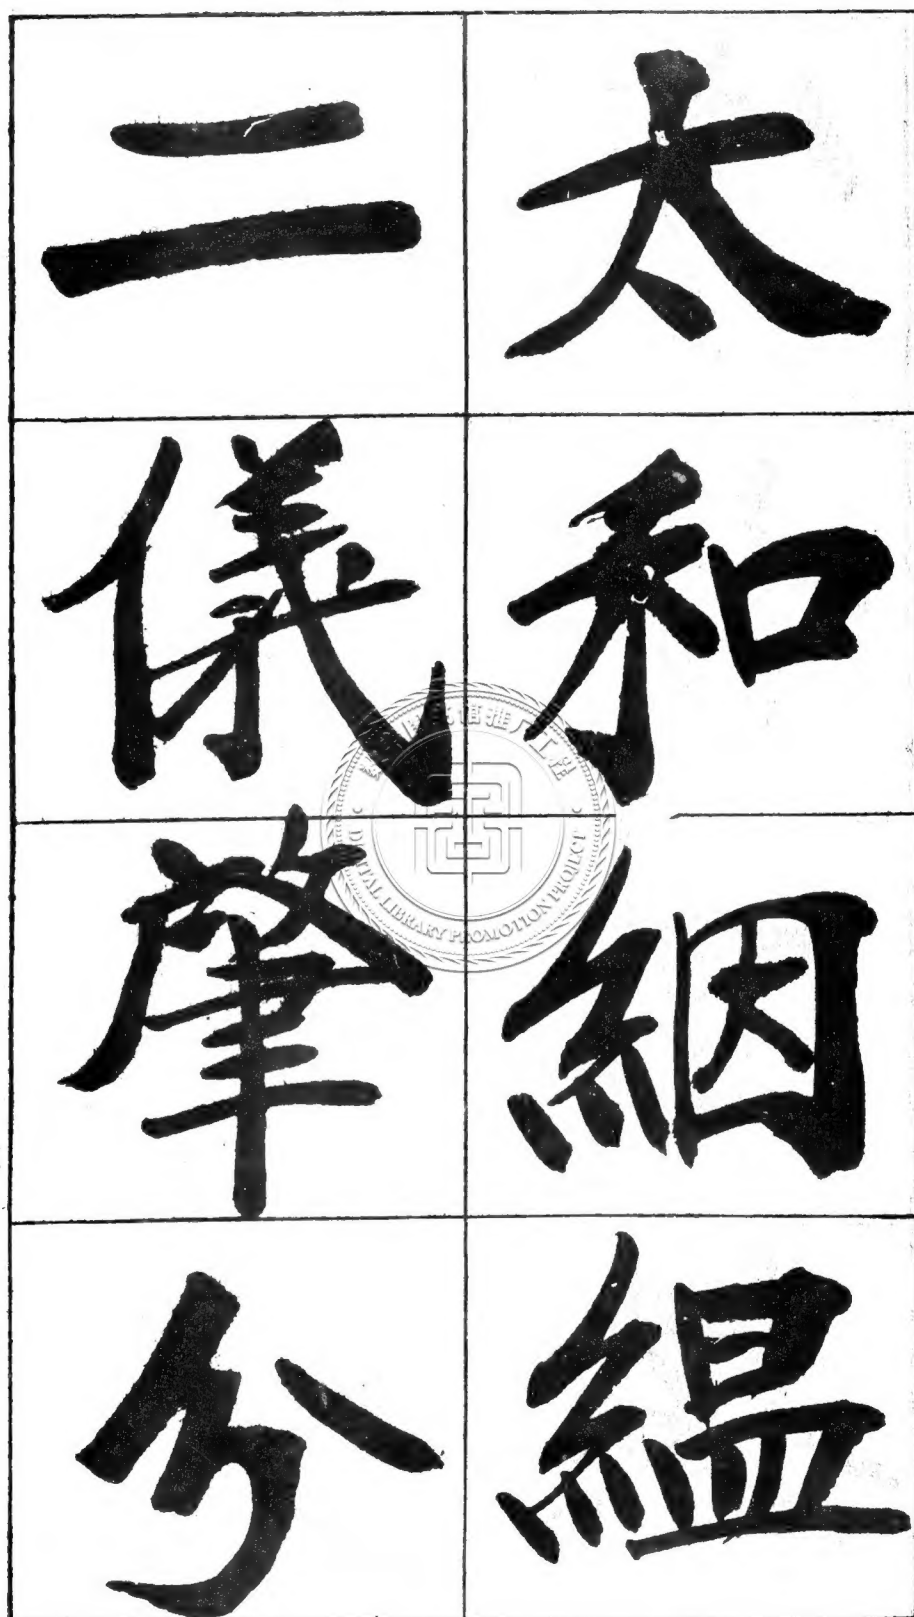 太和絪縕
二儀肇分
DIGITAL LIBRARY PROMOTION PROJECT